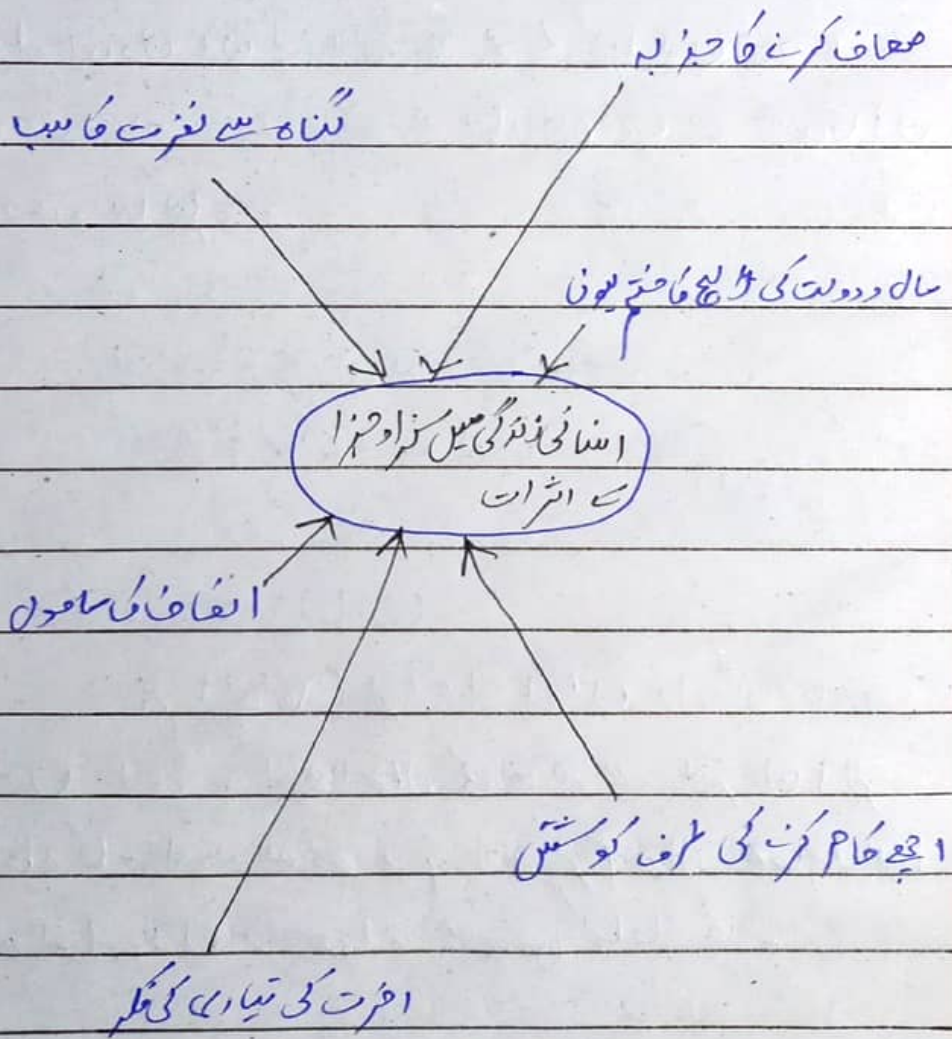 معاف کرنے کا جذبہ
گناہ سے نفرت کا سبب
مال و دولت کی لالچ کا ختم ہونا
انسانی زندگی میں سزا و جزا
کے اثرات
انصاف کا ماحول
اچھے کام کرنے کی طرف کوشش
اخرت کی تیاری کی فکر